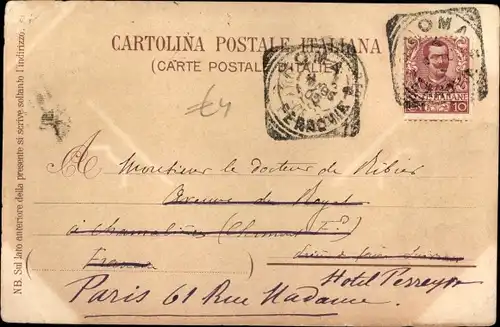 CARTOLINA POSTALE ITALIANA
(CARTE POSTALE D'ITALIE)
ROMA
FERROVIA
10
£4
A Monsieur le docteur de Ribier
Avenue de Royat
à Chamalières
France
Hotel Perreyve
Paris 61 Rue Madame
N B. Sul lato anteriore della presente si scrive soltanto l'indirizzo.